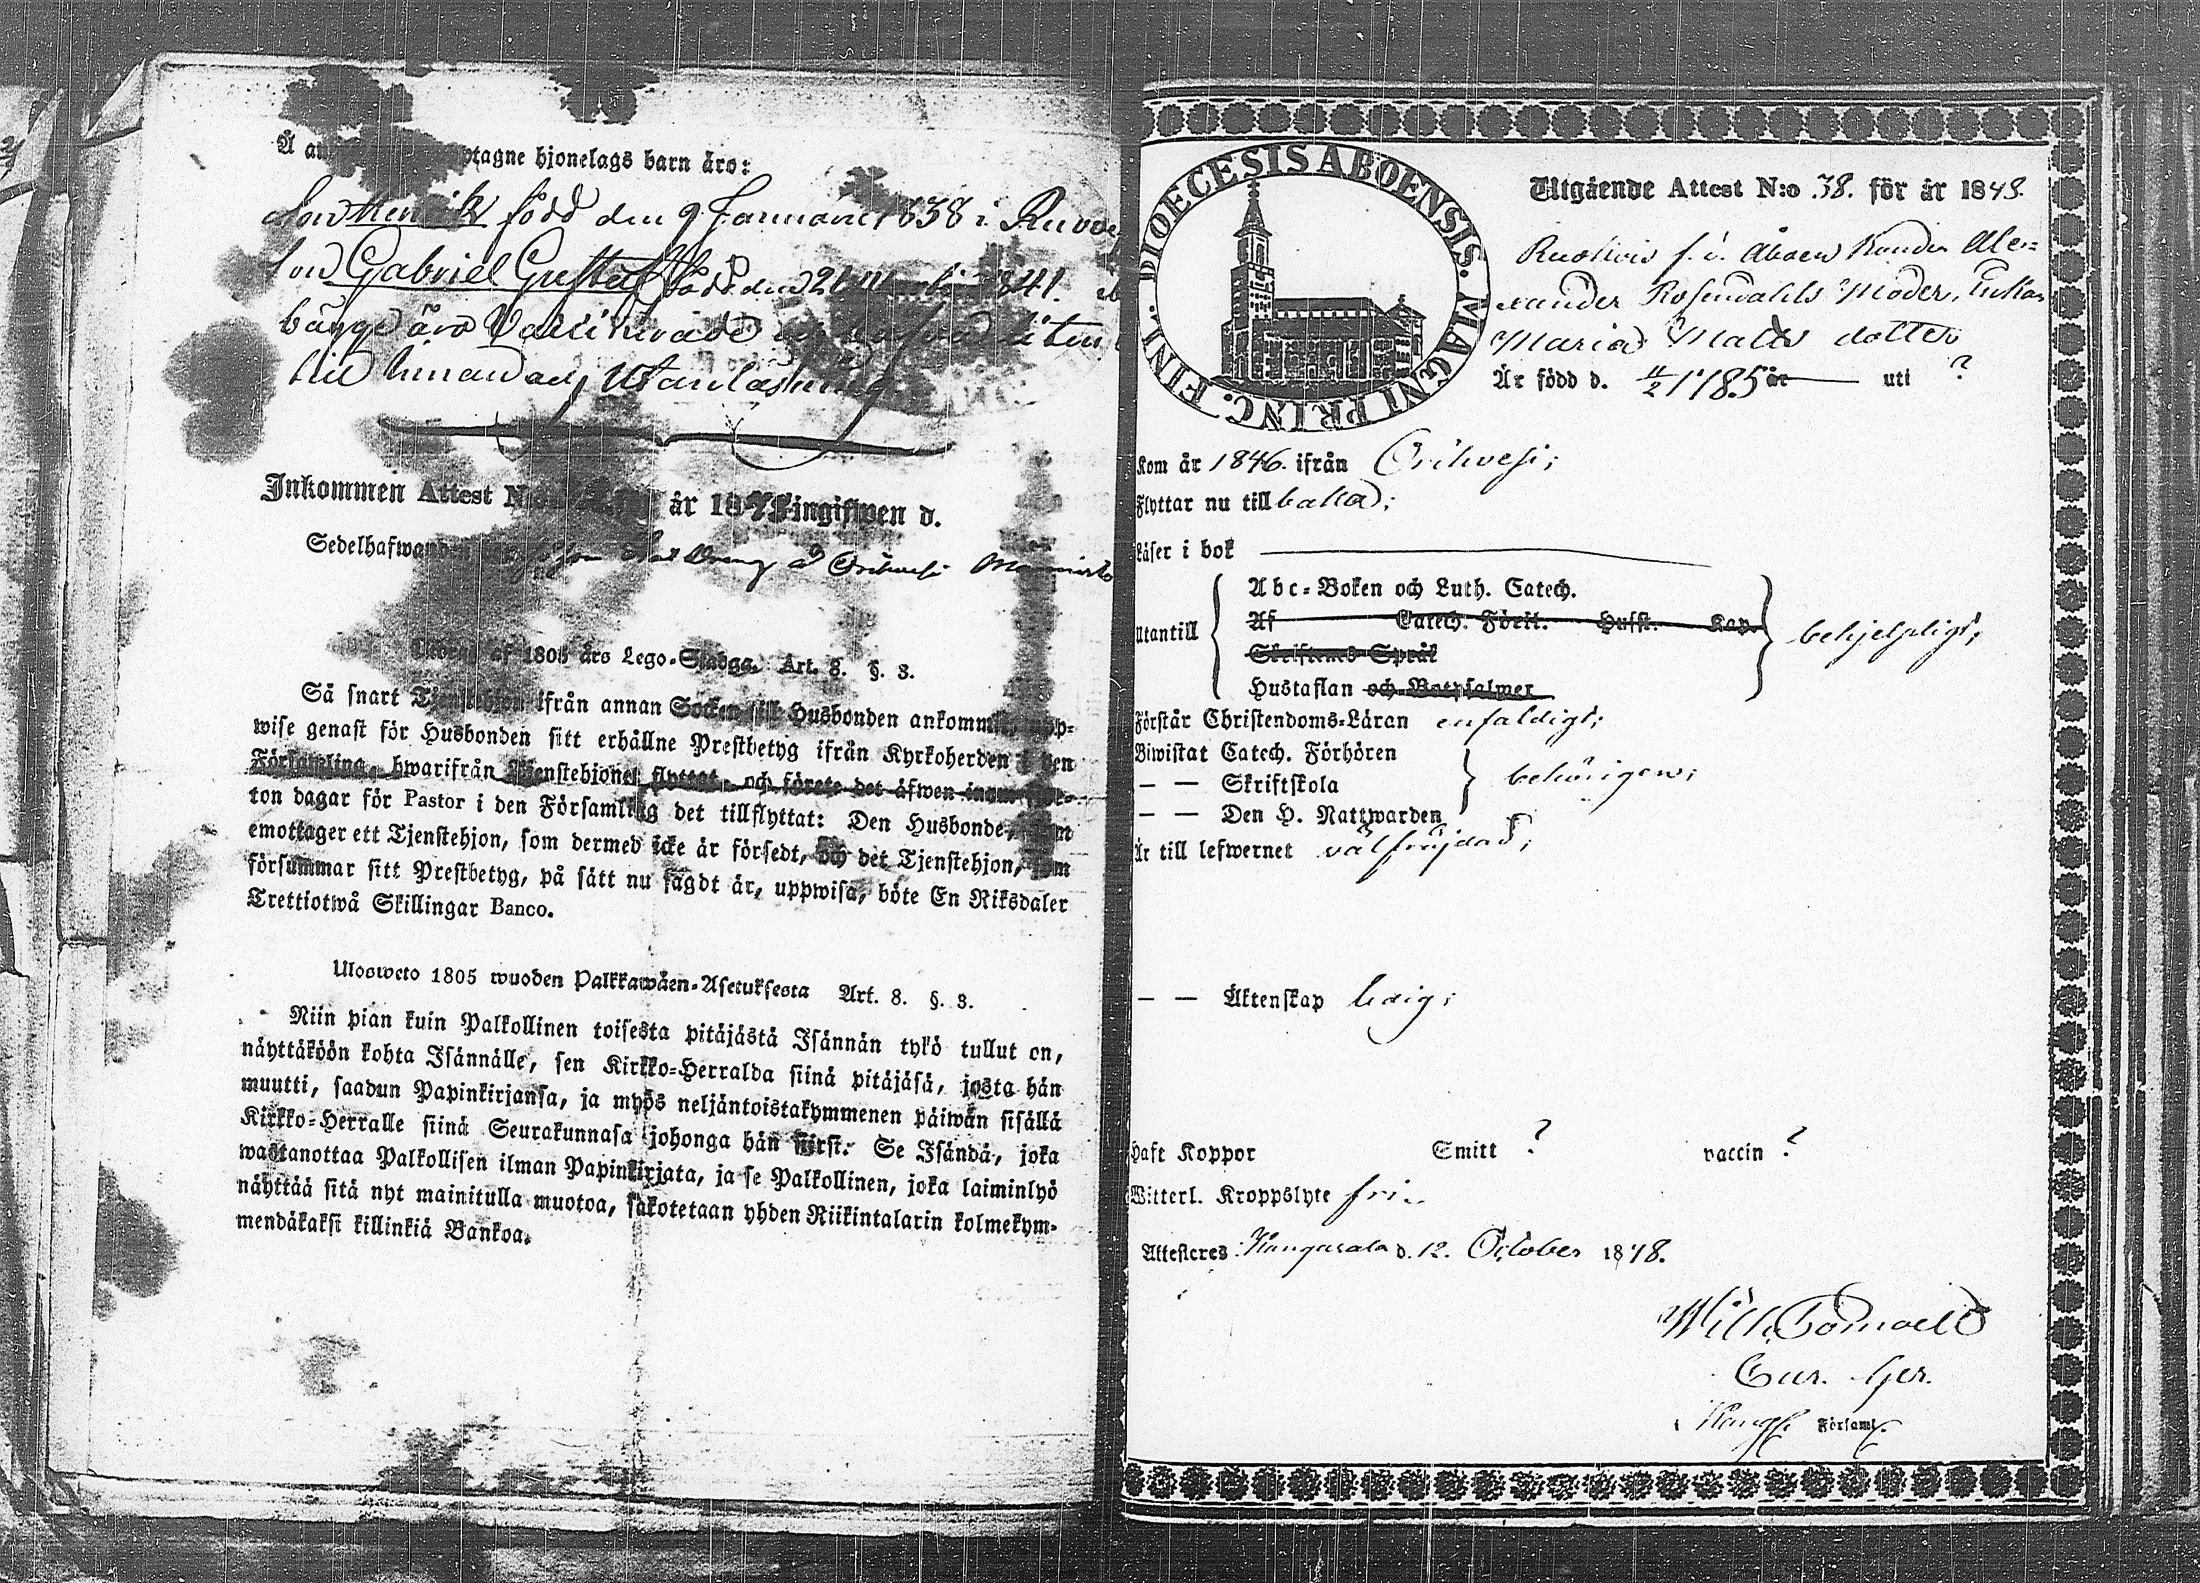 Å an ptagne hjonelags barn äro:
Son Henrik född den 9 Januarii 1838 i Ruove
son Gabriel Gustaf född den 21 1841.
bägge äro Vaccinerade
till innan och Utanläsning
Inkommen Attest N är 18 ingifwen d.
Sedelhafwanden Orihvesi
Utdrag af 1805 års Lego-Stadga. Art. 8. §. 3.
Så snart Tjenstehjon ifrån annan Socken till Husbonden ankommit, upp-
wise genast för Husbonden sitt erhållne Prestbetyg ifrån Kyrkoherden i den
Församling, hwarifrån Tjenstehjonet flyttat, och förete det äfwen inom fjor-
ton dagar för Pastor i den Församling det tillflyttat: Den Husbonde, som
emottager ett Tjenstehjon, som dermed icke är försedt, och det Tjenstehjon, som
försummar sitt Prestbetyg, på sätt nu sagdt är, uppwisa, böte En Riksdaler
Trettiotwå Skillingar Banco.
Ulosweto 1805 wuoden Palkkawäen-Asetuksesta Art. 8. §. 3.
Niin pian kuin Palkollinen toisesta pitäjästä Isännän tykö tullut on,
näyttäköön kohta Isännälle, sen Kirkko-Herralda siinä pitäjäsä, josta hän
muutti, saadun Papinkirjansa, ja myös neljäntoistakymmenen päiwän sisällä
Kirkko-Herralle siinä Seurakunnasa johonga hän siirsi: Se Isändä, joka
wastanottaa Palkollisen ilman Papinkirjata, ja se Palkollinen, joka laiminlyö
näyttää sitä nyt mainitulla muotoa, sakotetaan yhden Riikintalarin kolmekym-
mendäkaksi killinkiä Bankoa.
DIOECESIS ABOENSIS. MAGNI PRINC. FINL.
Utgående Attest N:o 38. för år 1848.
f. d. Åboen Kunden Alex=
xander Rosendahls Moder, Enkan
Maria Matts dotter
Är född d. 11/2 1785 är uti ?
Kom år 1846. ifrån Orihvesi;
Flyttar nu till baka;
Läser i bok
Utantill
Abc-Boken och Luth. Catech.
Af Catech. Förkl. Husst. Kap.
Skriftenes Språk
Hustaflan och Botpsalmer
behjelpligt;
Förstår Christendoms-Läran enfaldigt;
Biwistat Catech. Förhören
— — Skriftskola
— — Den H. Nattwarden
behörigen;
Är till lefwernet välfräjdad;
— — Äktenskap ledig;
Haft Koppor Smitt ? vaccin ?
Witterl. Kroppslyte fri.
Attesteres Kangasala d. 12. October 1848.
Wilh.
Cur. Ger.
Kangl. Församl.